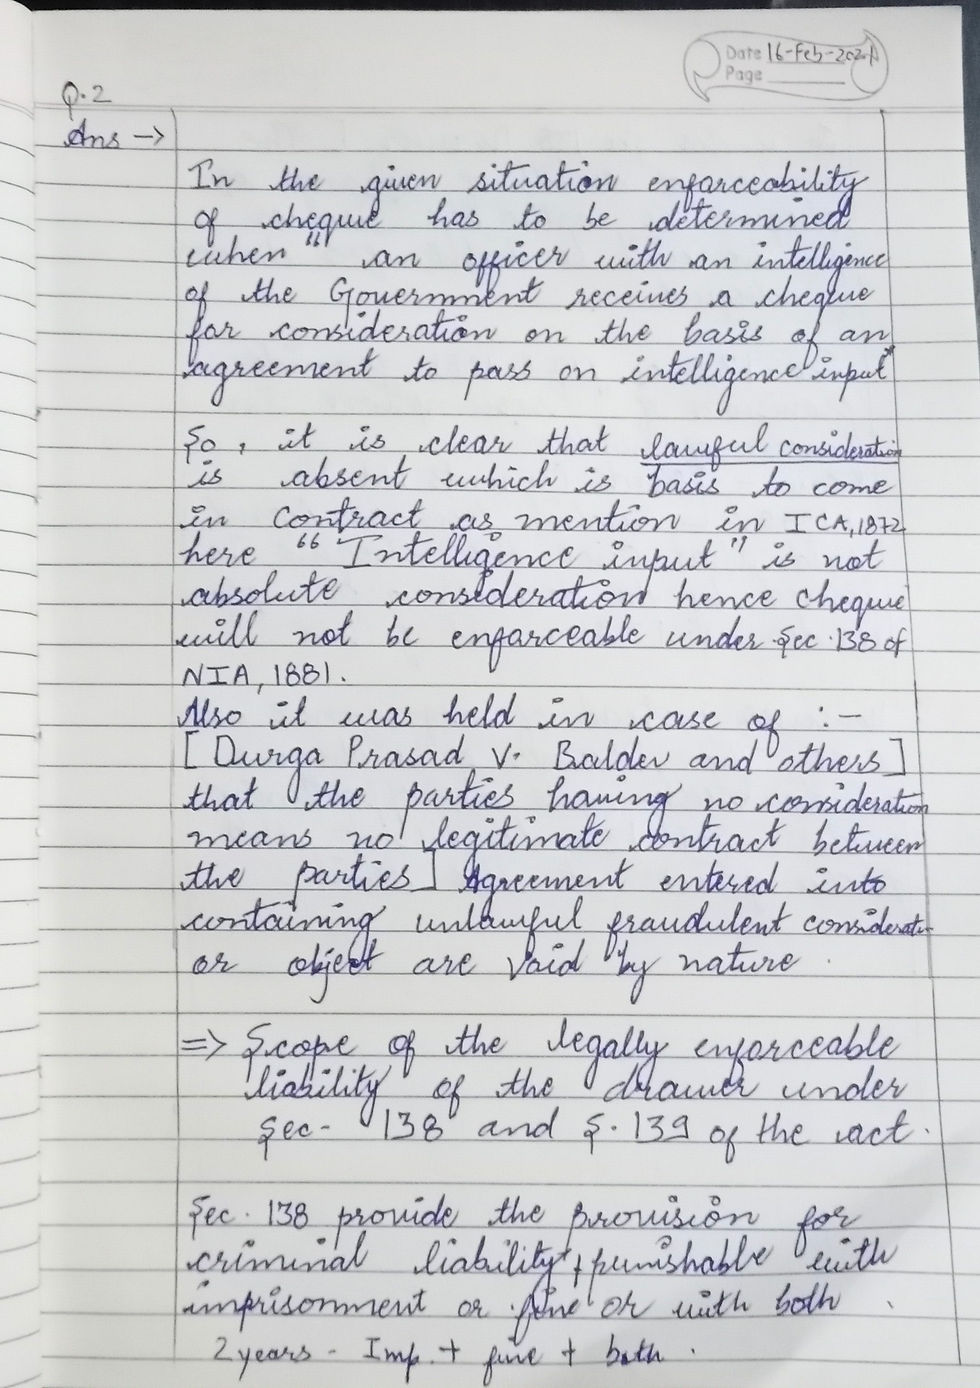 Date 16-Feb-202
Page
Q.2
Ans →
In the given situation enforceability
of cheque has to be determined
when " an officer with an intelligence
of the Government receives a cheque
for consideration on the basis of an
agreement to pass on intelligence input"
So, it is clear that lawful consideration
is absent which is basis to come
in contract as mention in ICA,1872
here "Intelligence input" is not
absolute consideration hence cheque
will not be enforceable under Sec.138 of
NIA, 1881.
Also it was held in case of :-
[Durga Prasad V. Baldev and others]
that the parties having no consideration
means no legitimate contract between
the parties] Agreement entered into
containing unlawful fraudulent considerati-
or object are void by nature.
=> Scope of the legally enforceable
liability of the drawer under
Sec- 138 and S.139 of the act.
Sec.138 provide the provision for
criminal liability + punishable with
imprisonment or fine or with both
2 years - Imp. + fine + both.